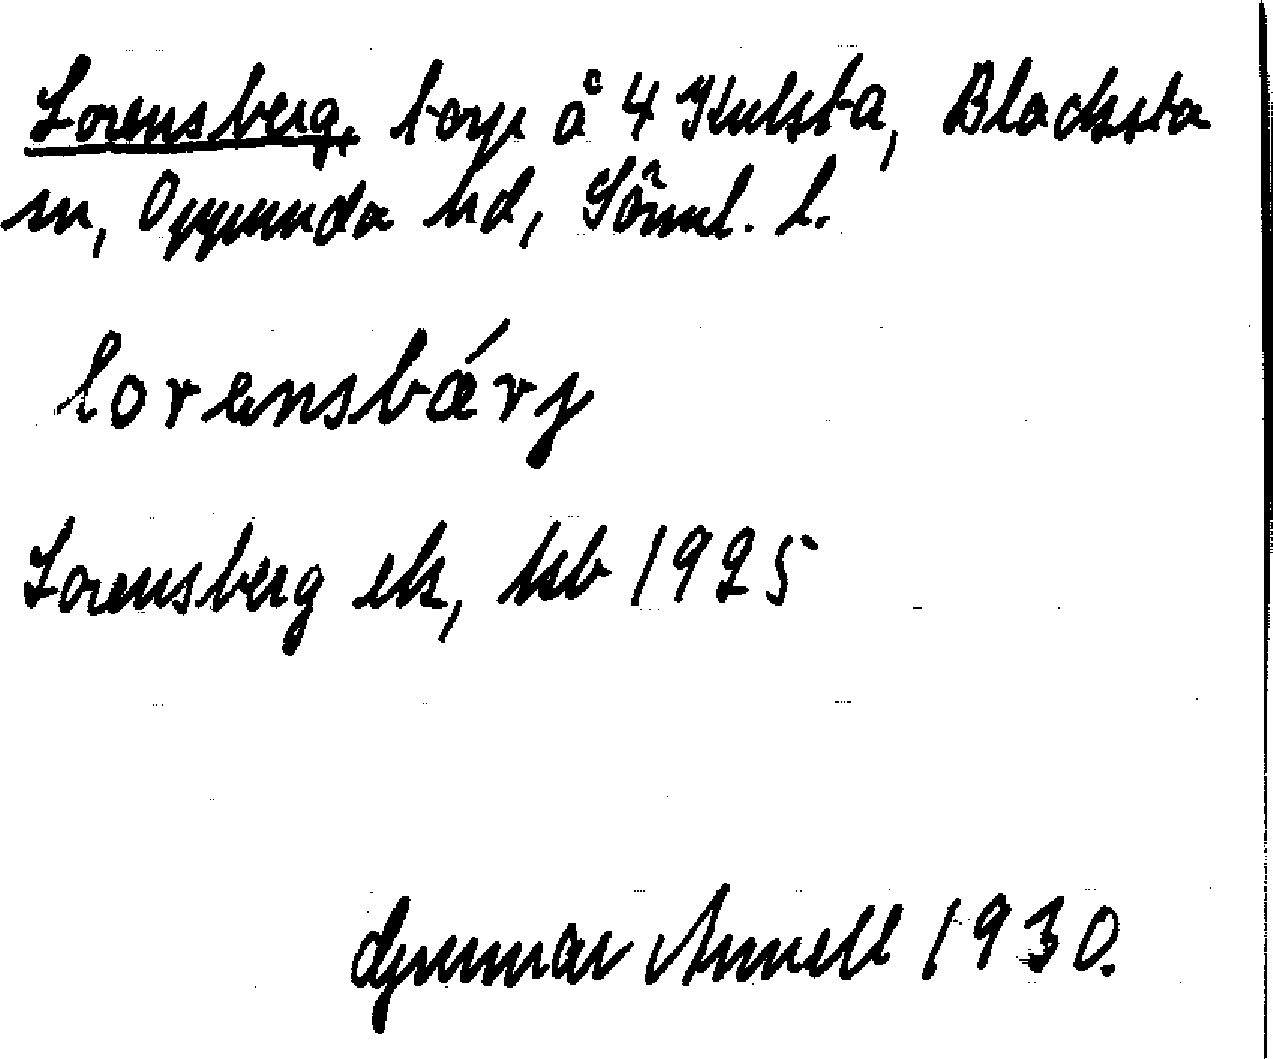 Lorensberg, torp å 4 Kulsta, Blacksta
sn, Oppunda hd, Sörml. l.
lorensbárj
Lorensberg ek, hb 1925
Gunnar Annell 1930.